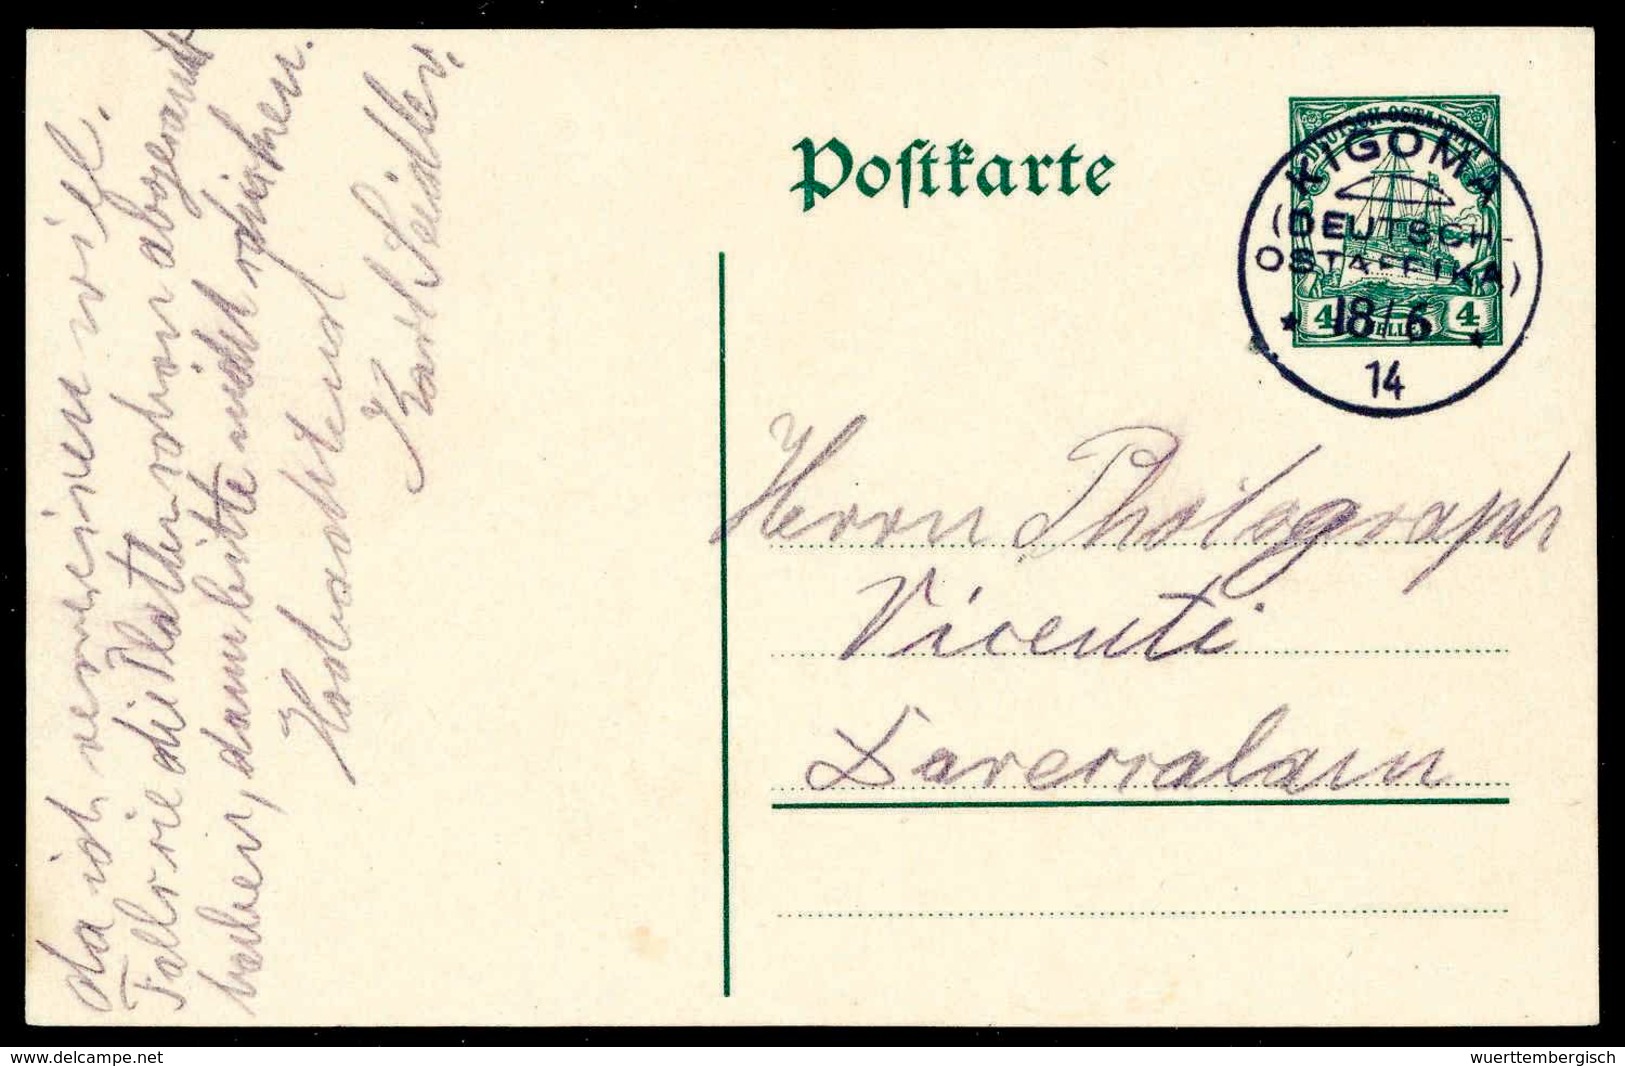 da ich verreisen will.
Falls sie die Platten schon abgesandt
haben, dann bitte nicht schicken.
Hochachtend
Karl Seidler.
Postkarte
DEUTSCH-OSTAFRIKA
4 HELLER 4
KIGOMA
(DEUTSCH-
OSTAFRIKA)
* 18/6 *
14
Herrn Photograph
Vicenti
Daressalam
www.delcampe.net
wuerttembergisch